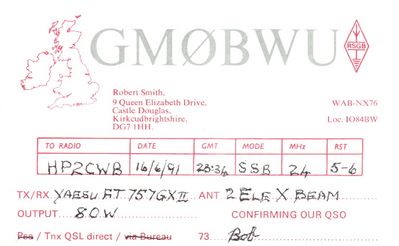 GMØBWU
RSGB
Robert Smith,
9 Queen Elizabeth Drive,
Castle Douglas,
Kirkcudbrightshire,
DG7 1HH.
WAB-NX76
Loc. IO84BW
TO RADIO DATE GMT MODE MHz RST
HP2CWB 16/6/91 23:34 SSB 24 5-6
TX/RX YAESU FT 757GX II ANT 2 ELE X BEAM
OUTPUT 80W CONFIRMING OUR QSO
Pse / Tnx QSL direct / via Bureau 73 Bob